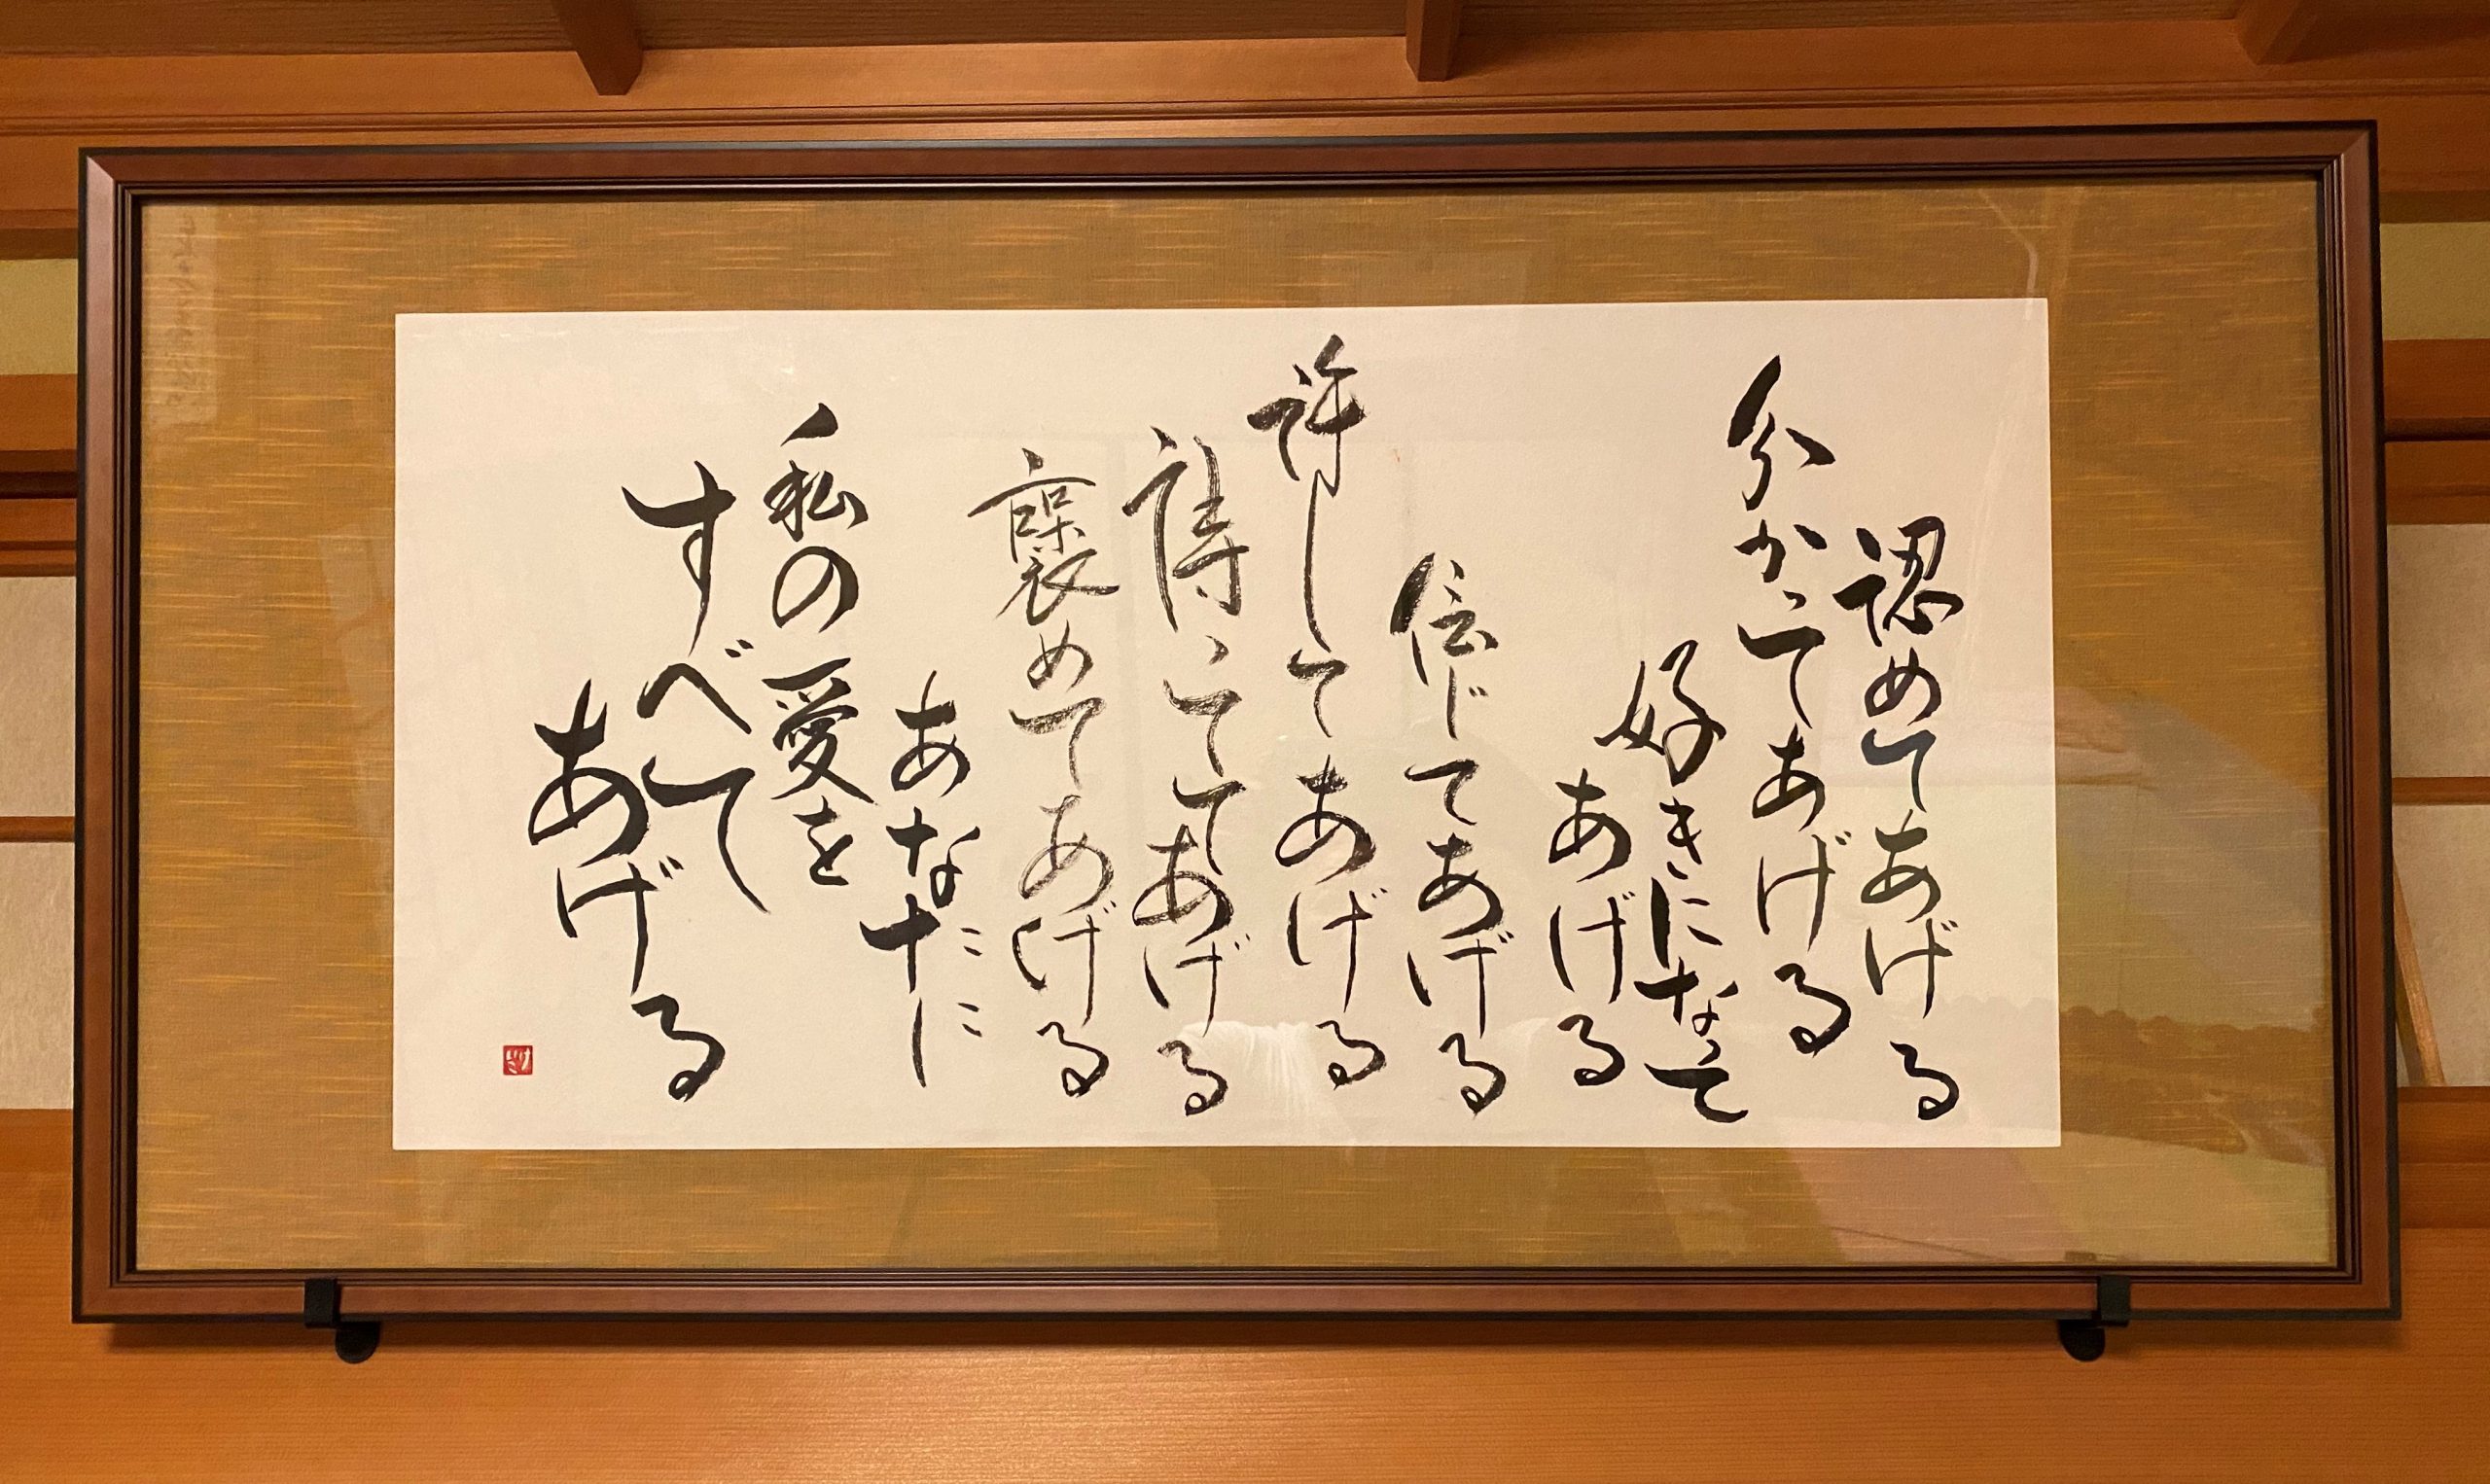 認めてあげる
分かってあげる
好きになって
あげる
信じてあげる
許してあげる
待っててあげる
褒めてあげる
あなたに
私の愛を
すべて
あげる